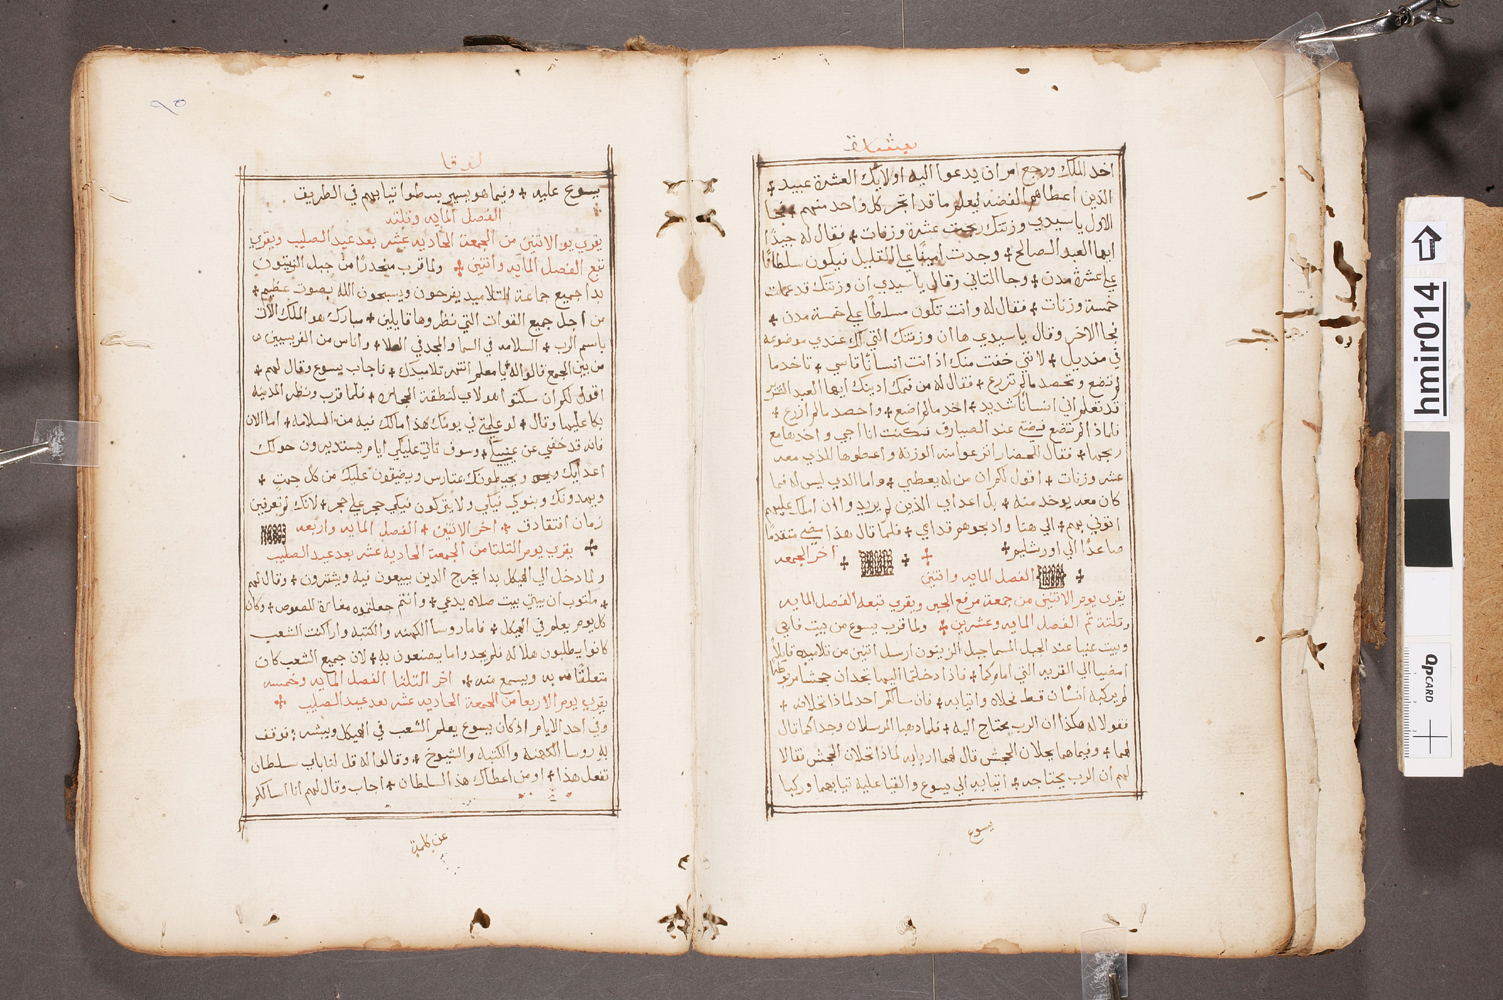 بشارة
اخد الملك ورجع امر ان يدعوا اليه اولايك العشرة عبيد
الدين اعطاهم الفضه ليعلم ما قد اتجر كل واحد منهم فجا
الاول يا سيدي وزنتك ربحت عشرة وزنات فقال له جيدًا
ايها العبد الصالح وجدت امينًا علي القليل فيكون سلطانًا
علي عشرة مدن وجا التاني وقال يا سيدي ان وزنتك قد عملت
خمسة وزنات فقال له وانت تكون مسلطًا علي خمسة مدن
فجا الاخر وقال يا سيدي ها ان وزنتك التي لك عندي موضوعه
في منديل لانني خفت منك اذ انت انسانًا قاسي تاخد ما
لم تضع وتحصد مالم تزرع فقال له من فمك ادينك ايها العبد الشرير
قد تعلم اني انسانًا شديد اخد مالم اضع واحصد مالم ازرع
فلماذا لم تضع فضتي عند الصيارف فكنت انا اجي واخدها مع
ربحها فقال للحضار انزعوا منه الوزنه واعطوها للذي معه
عشر وزنات اقول لكم ان من له يعطي واما الدي ليس له فما
كان معه يوخد منه بل اعداي الذين لم يريدوا ان املك عليهم
اتوني بهم الي هنا وادبحوهم قدامي فلما قال هذا مضي متقدمًا
صاعدًا الي اورشليم اخر الجمعه
الفصل المايه واتنين
يقري يوم الاتنين من جمعة مرفع الجبن ويقري تبعه الفصل المايه
وتلتة تم الفصل المايه وعشرين ولما قرب يسوع من بيت فاجي
وبيت عنيا عند الجبل المسما جبل الزيتون ارسل اتنين من تلاميده قايلاً
امضيا الي القريه التي امامكما فاذا دخلتما اليها تجدان جحشًا مربوطًا
لم يركبه انسان قط فحلاه واتيا به فان سالكم احد لماذا تحلانه
فقولا له هكذا ان الرب يحتاج اليه فلما دهبا المرسلان وجدا كما قال
لهما وفيما هما يحلان الجحش قال لهما اربابه لماذا تحلان الجحش فقالا
لهم ان الرب يحتاجه اتيا به الي يسوع والقيا عليه تيابهما وركبا
يسوع
لوقا
يسوع عليه وفيما هو يسير بسطوا تيابهم في الطريق
الفصل المايه وتلته
يقري يوم الاتنين من الجمعة الحاديه عشر بعد عيد الصليب ويقري
تبع الفصل المايه واتنين ولما قرب منحدرًا من جبل الزيتون
بدا جميع جماعة التلاميد يفرحون ويسبحون الله بصوت عظيم
من اجل جميع القوات التي نظروها قايلين مبارك هو الملك الات
باسم الرب السلامه في السما والمجد في العلا واناس من الفريسيين
من بين الجمع قالوا له يا معلم انتهر تلاميدك فاجاب يسوع وقال لهم
اقول لكم ان سكتوا هولاي لنطقت الحجاره فلما قرب ونظر المدينه
بكا عليها وقال لو علمتي في يومك هذا مالك فيه من السلامه اما الان
فانه قد خفي عن عينيك وسوف تاتي عليكي ايام يستديرون حولك
اعدايك ويحيطونك عتارس ويضيقون عليك من كل جهت
ويهدمونك وبنوكي فيكي ولا يتركون فيكي حجر علي حجر لانك لم تعرفين
زمان افتقادك اخر الاتنين الفصل المايه واربعه
يقري يوم التلتا من الجمعة الحاديه عشر بعد عيد الصليب
ولما دخل الي الهيكل بدا يخرج الدين يبيعون فيه ويشترون وقال لهم
مكتوب ان بيتي بيت صلاه يدعي وانتم جعلتموه مغارة للصوص وكان
كل يوم يعلم في الهيكل فاما روسا الكهنه والكتبه واراكنت الشعب
كانوا يطلبون هلاكه فلم يجدوا ما يصنعون به لان جميع الشعب كان
متعلقًا به ويسمع منه اخر التلتا الفصل المايه وخمسه
يقري يوم الاربعا من الجمعة الحاديه عشر بعد عيد الصليب
وفي احد الايام اذ كان يسوع يعلم الشعب في الهيكل ويبشر فوقف
به روسا الكهنه والكتبه والشيوخ وقالوا له قل لنا باب سلطان
تفعل هذا او من اعطاك هذا السلطان اجاب وقال لهم انا اسالكم
عن كلمة